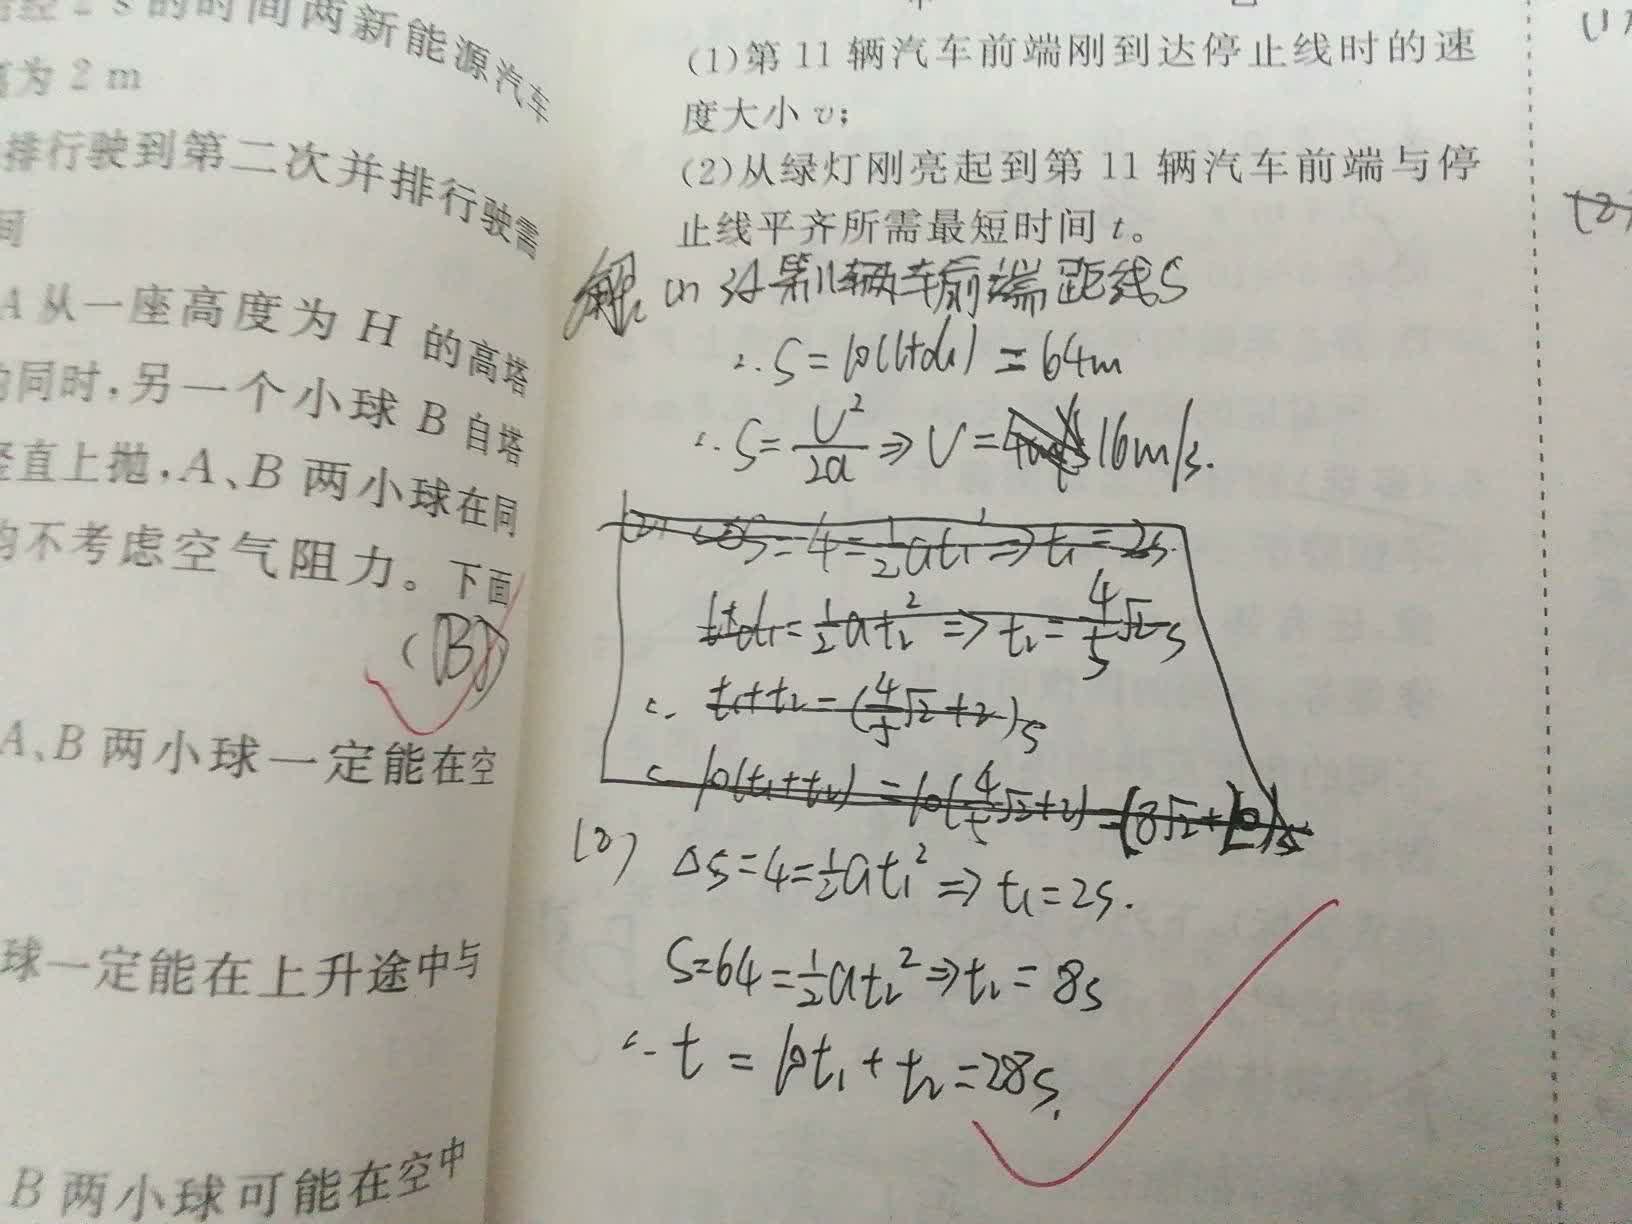 2 s 的时间两新能源汽车
为 2 m
排行驶到第二次并排行驶需
间
A 从一座高度为 H 的高塔
的同时,另一个小球 B 自塔
竖直上抛,A、B 两小球在同
均不考虑空气阻力。下面
(B)
A、B 两小球一定能在空
球一定能在上升途中与
B 两小球可能在空中
(1)第 11 辆汽车前端刚到达停止线时的速
度大小 v;
(2)从绿灯刚亮起到第 11 辆汽车前端与停
止线平齐所需最短时间 t。
解: (1) 设第11辆车前端距线S
∴ S=10(l+d₁)=64m
∴ S=\frac{v²}{2a}⇒v=16m/s.
(2) ΔS=4=\frac{1}{2}at₁²⇒t₁=2s.
l+d₁=\frac{1}{2}at₂²⇒t₂=\frac{4}{5}√2s
∴ t₁+t₂=(\frac{4}{5}√2+2)s
∴ 10(t₁+t₂)=10(\frac{4}{5}√2+2)=(8√2+20)s
(2) ΔS=4=\frac{1}{2}at₁²⇒t₁=2s.
S=64=\frac{1}{2}at₂²⇒t₂=8s
∴ t=10t₁+t₂=28s.
(1)
(2)